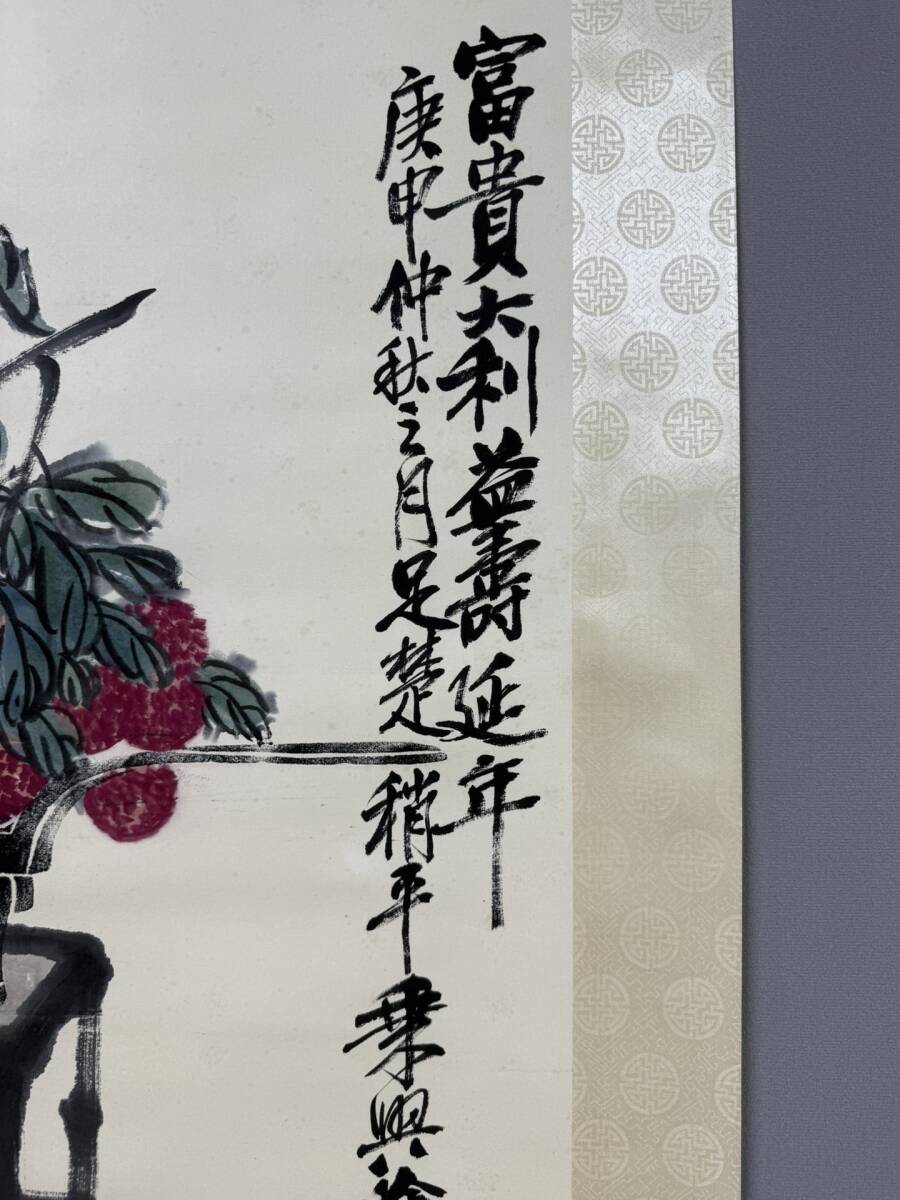 富貴大利益壽延年
庚申仲秋之月足楚稍平乘興